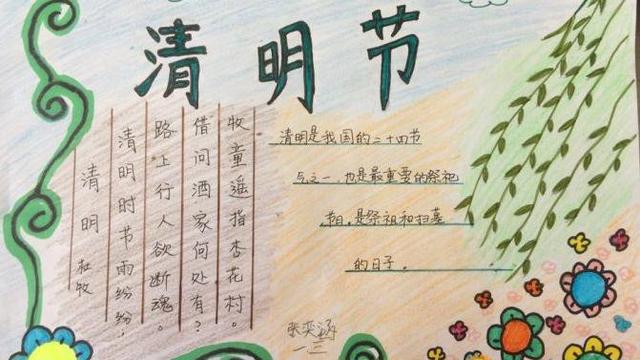 清明节
清明 杜牧
清明时节雨纷纷，
路上行人欲断魂。
借问酒家何处有？
牧童遥指杏花村。
清明是我国的二十四节
气之一，也是最重要的祭祀
节日，是祭祖和扫墓
的日子。
张奕涵
一三